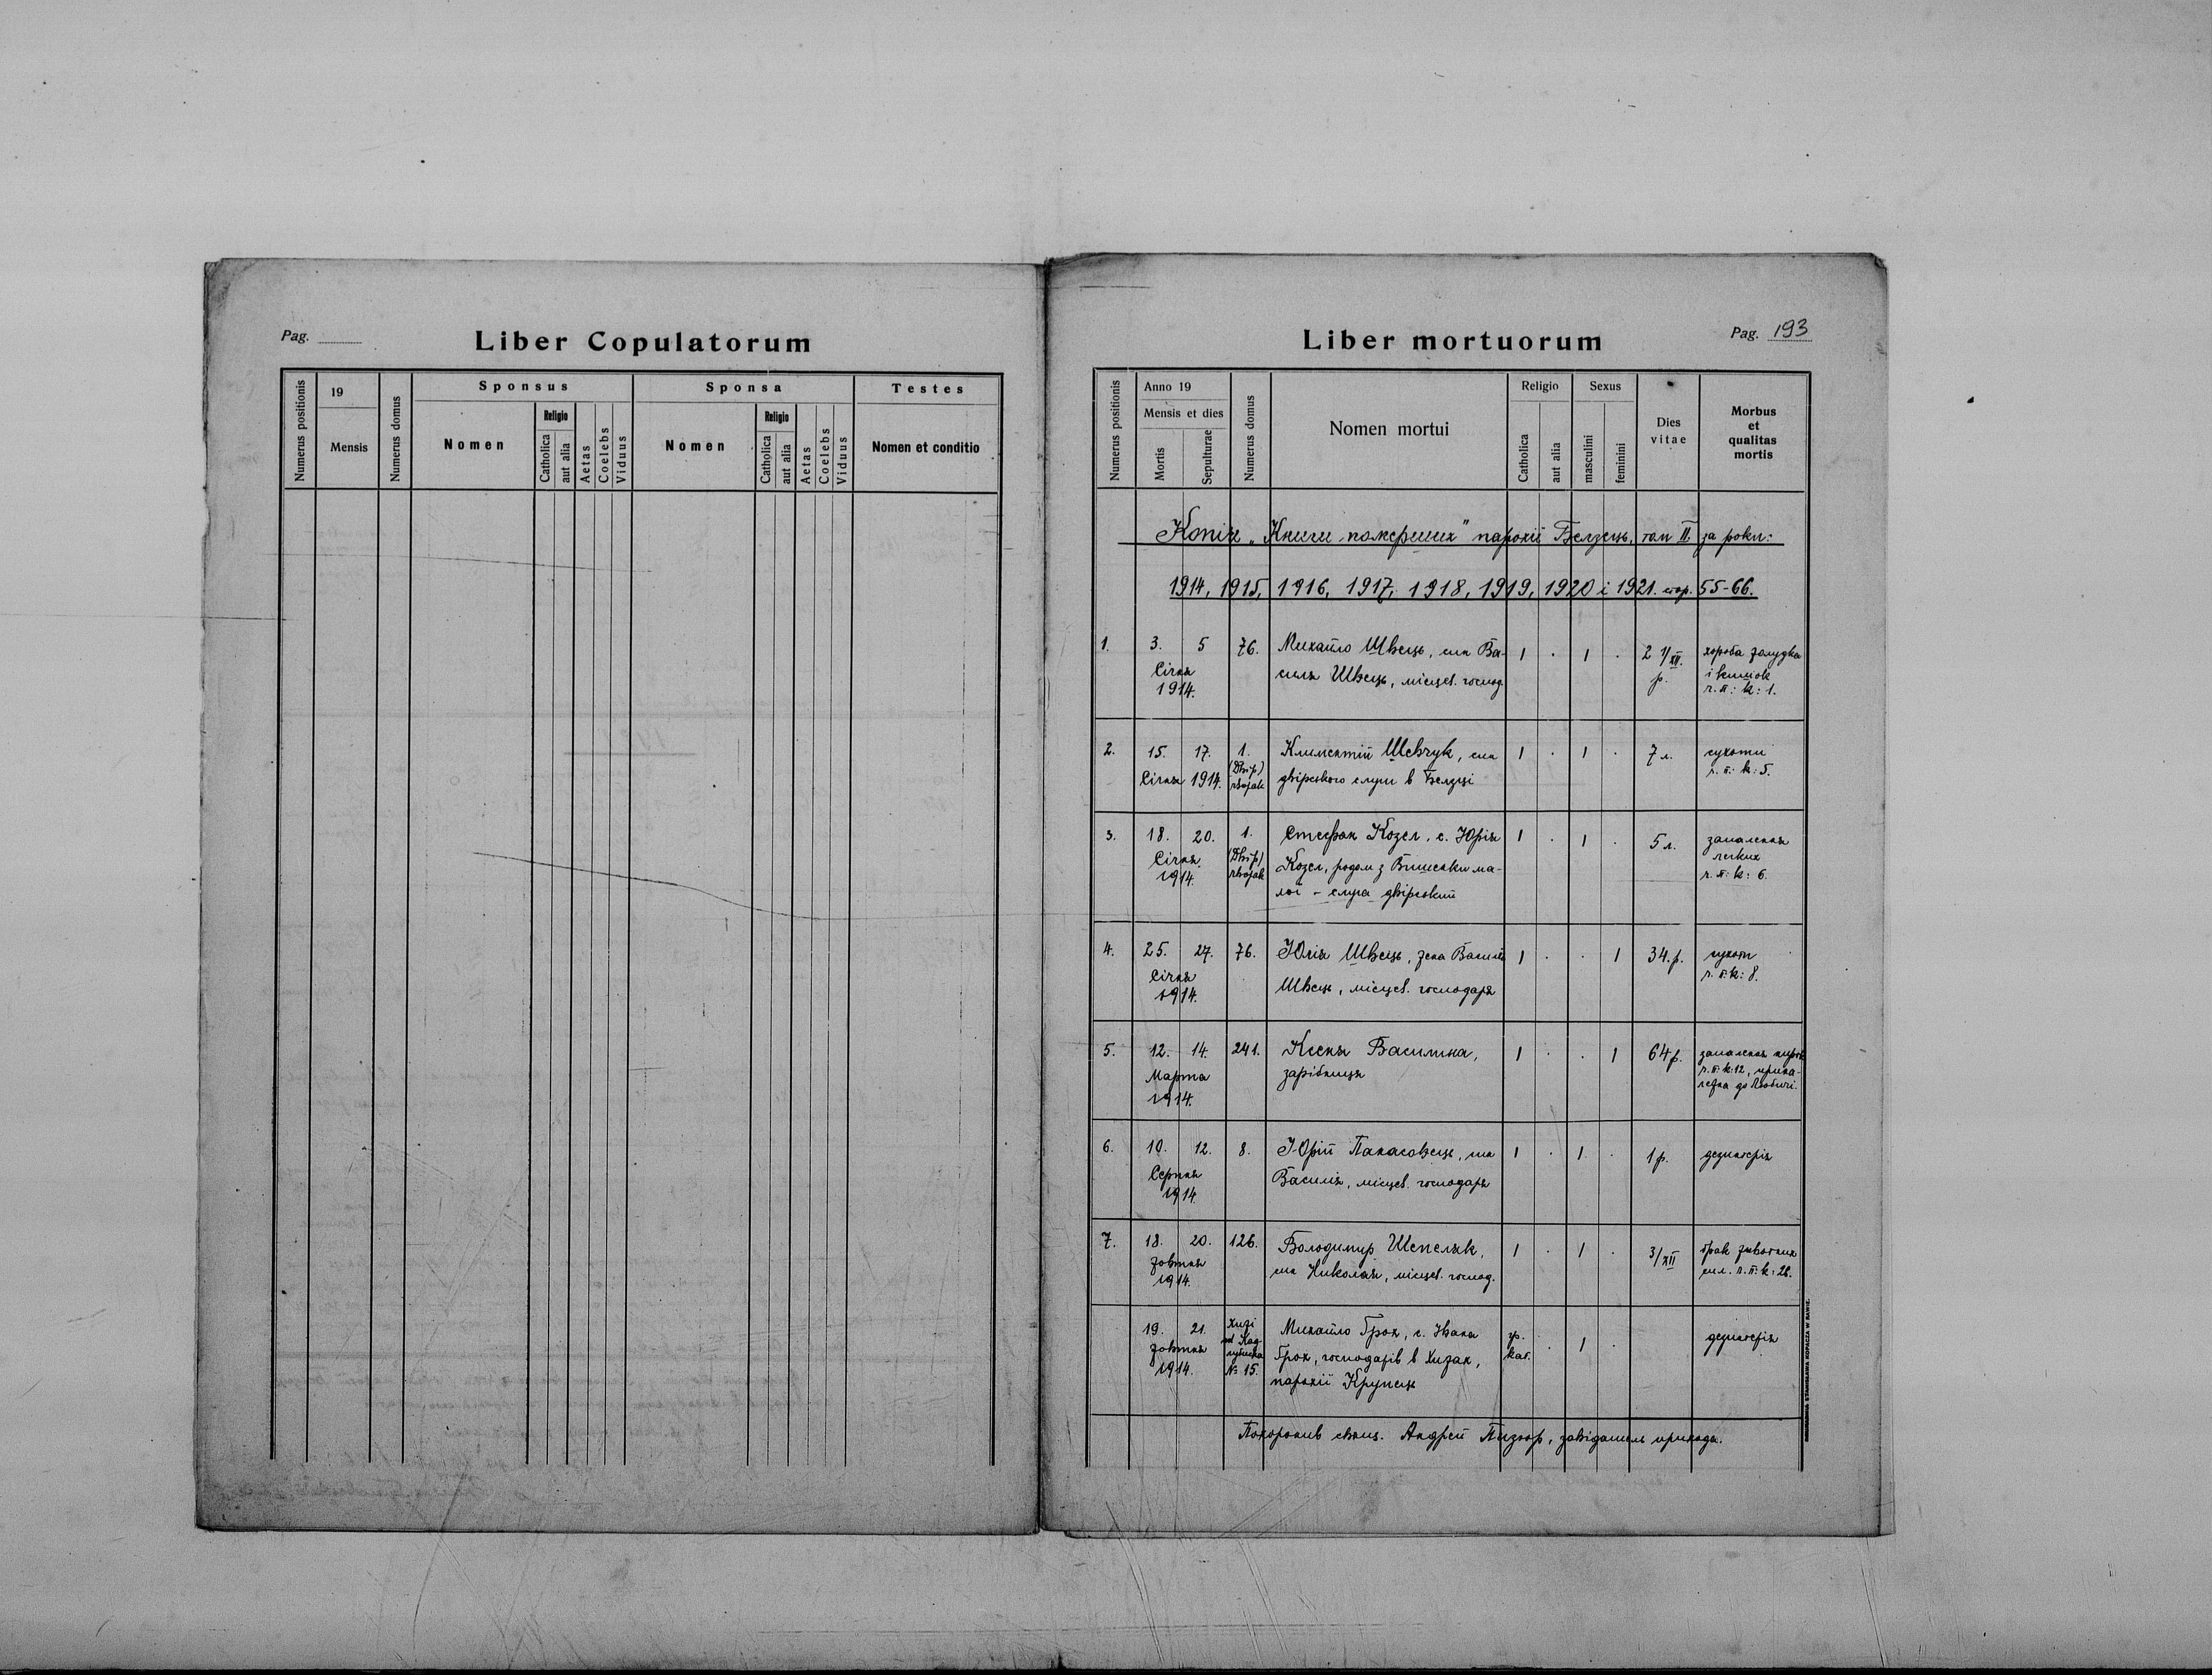 Pag.
Liber Copulatorum
Numerus positionis
19
Mensis
Numerus domus
Sponsus
Nomen
Religio
Catholica
aut alia
Aetas
Coelebs
Viduus
Sponsa
Nomen
Religio
Catholica
aut alia
Aetas
Coelebs
Viduus
Testes
Nomen et conditio
Liber mortuorum
Pag. 193
Numerus positionis
Anno 19
Mensis et dies
Mortis
Sepulturae
Numerus domus
Nomen mortui
Religio
Catholica
aut alia
Sexus
masculini
feminini
Dies
vitae
Morbus
et
qualitas
mortis
Копія „Книги померших" парохії Белзець, том II. за роки:
1914, 1915, 1916, 1917, 1918, 1919, 1920 і 1921. стор. 55-66.
1. 3. 5 76. Михайло Швець, син Ва- 1 . 1 . 2 1/XII. хороба жолудка
Січня силя Швець, місцев. господ. р. і кишок
1914. ч. п: к: 1.
2. 15. 17. 1. Климентій Шевчук, син 1 . 1 . 7 л. сухоти
Січня 1914. (Двір) фільварк двірського слуги в Белзці ч. п: к: 5.
3. 18. 20. 1. Стефан Козел, с. Юрія 1 . 1 . 5 л. запалення
Січня (Двір) Козел, родом з ма- легких
1914. лої - слуга двірський ч. п: к: 6.
4. 25. 27. 76. Юлія Швець, жена Василя 1 . . 1 34. р. сухоти
Січня Швець, місцев. господаря ч. п. к: 8.
1914.
5. 12. 14. 241. Ксеня Василина, 1 . . 1 64 р. запалення нирок
Марта зарібниця ч. п: к: 12, прина-
1914. лежна до Любичі.
6. 10. 12. 8. Юрій Панасовець, син 1 . 1 . 1 р. дезинтерія
Серпня Василія, місцев. господаря
1914.
7. 18. 20. 126. Володимир Шепеляк, 1 . 1 . 3/XII брак животних
жовтня син Николая, місцев. господ. сил. ч. п: к: 26.
1914.
19. 21. Хижі Михайло Грох, с. Івана гр. . 1 . дезинтерія
жовтня Грох, господарів в Хижах, кат.
1914. № 15. парохії Крупець
Похоронив свящ. Андрей Пизюр, завідатель прихода.